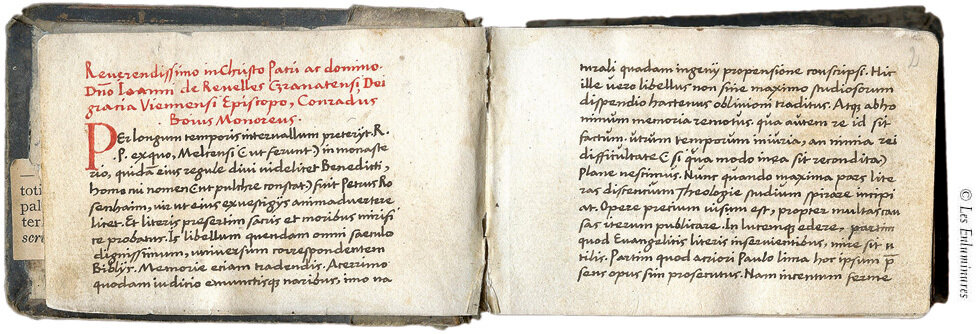 Reverendissimo in Christo Patri ac domino.
Dño Ioanni de Revelles Granatensi, Dei
gracia Viennensi Episcopo, Conradus
Boius Monoreus.
PEr longum temporis intervallum preteryt R.
P. exquo, Melcensi (ut ferunt) in monaste
rio, quidã eius regule divi videlitet Benedicti,
homo cui nomen (ut pulchre constat) fuit Petrus Ro
senhaim, vir ut eius ex vestigys animadvertere
licet. Et literis presertim sacris et moribus mirifi
ce probatus. Is libellum quendam omni saeculo
dignissimum, universum correspondentem
Biblys. Memorie etiam tradendis. Acerrimo
quodam iudicio emunctisque naribus, imo na
2
turali quadam ingeny propensione conscripsi. Hic
ille vero libellus non sine maximo studiosorum
dispendio hactenus oblivioni traditus. Atq; ab ho
minum memoria remotus. qua autem re id sit
factum. utrum temporum iniuria, an nimia rei
difficultate (E si qua modo in ea sit recondita)
Plane nescimus. Nunc quando maxima pars lite
ras discentium Theologie studium spirare incipi
at. Opere precium visum est, propter multas cau
sas iterum publicare. In lucemque edere, partim
quod Evangelicis literis inservientibus, mire sit u
tilis. Partim quod acriori Paulo lima hoc ipsum p̃
sens opus sim prosecutus. Nam incentum ferme
toti
pal
ter.
scri
© Les Enluminures